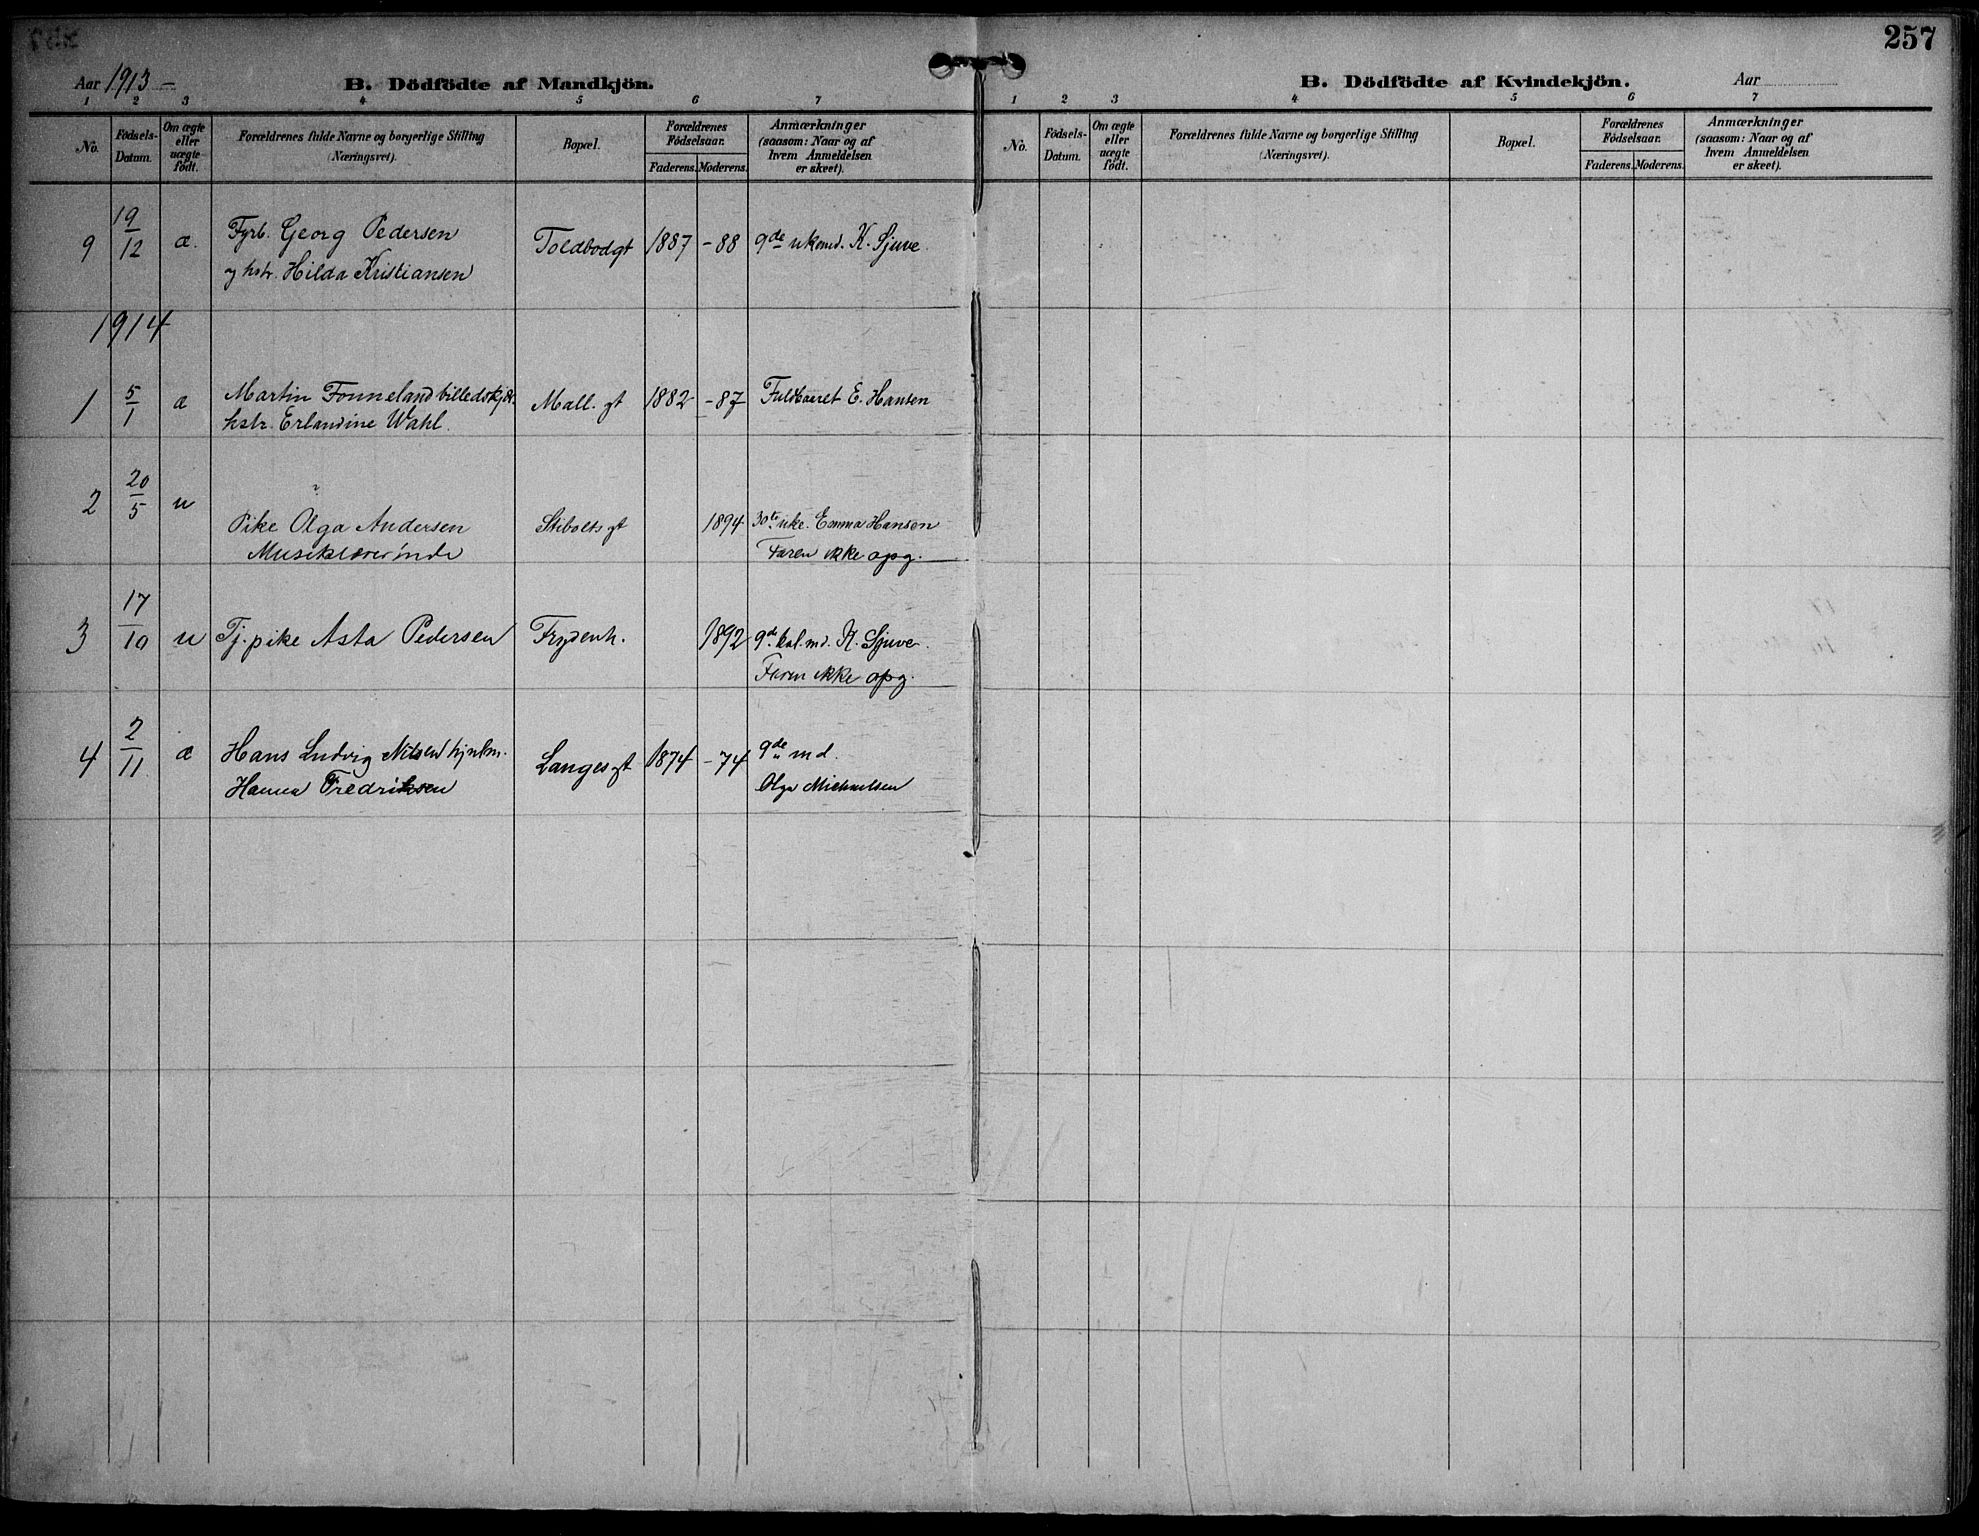 257
Aar 1913 –
B. Dödfödte af Mandkjön.
1 2 3 4 5 6 7
No.
Fødsels-
Datum.
Om ægte
eller
uægte
født.
Forældrenes fulde Navne og borgerlige Stilling
(Næringsvei).
Bopæl.
Forældrenes
Fødselsaar.
Faderens. Moderens.
Anmærkninger
(saasom: Naar og af
hvem Anmeldelsen
er skeet).
9 19/12 æ. Fyrb. Georg Pedersen Toldbodgt 1887 – 88 9de ukemd. K. Sjuve.
og hstr. Hilda Kristiansen
1914
1 5/1 æ Martin Fonneland billedskj. Mall. gt 1882 – 87 Fuldbaaret E. Hansen
hstr. Erlandine Wahl.
2 20/5 u ?
Pike Olga Andersen Stibolts gt 1894 30te uke. Emma Hansen
Musiklærerinde Faren ikke opg.
3 17/10 u Tj. pike Asta Pedersen Frydenh. 1892 9de kal. md. K. Sjuve.
Faren ikke opg.
4 2/11 æ Hans Ludvig Nilsen Langes gt 1874 – 74 9de md.
Hanna Fredriksen Olga Michaelsen
B. Dödfödte af Kvindekjön.
Aar
1 2 3 4 5 6 7
No.
Fødsels-
Datum.
Om ægte
eller
uægte
født.
Forældrenes fulde Navne og borgerlige Stilling
(Næringsvei).
Bopæl.
Forældrenes
Fødselsaar.
Faderens. Moderens.
Anmærkninger
(saasom: Naar og af
hvem Anmeldelsen
er skeet).